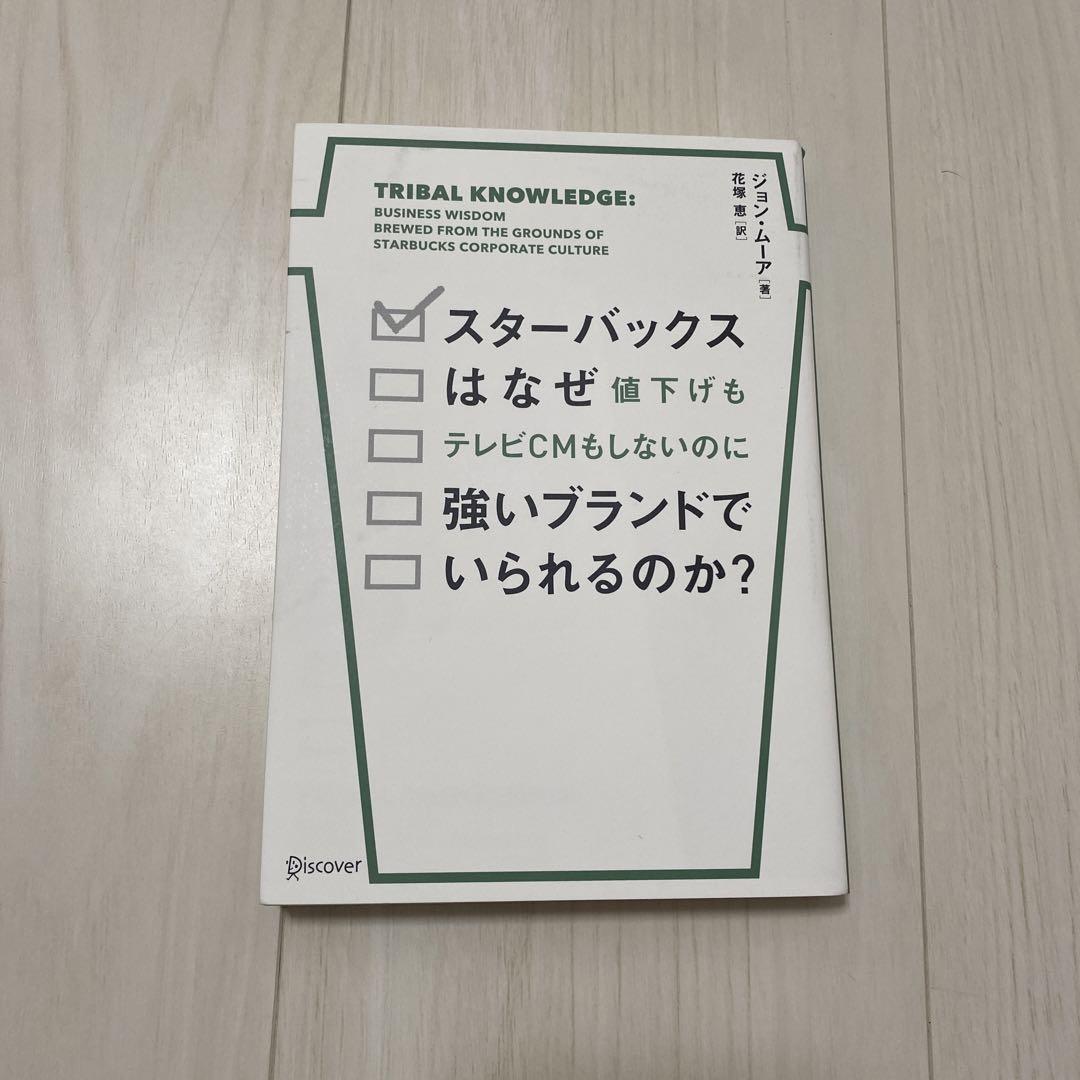 TRIBAL KNOWLEDGE:
BUSINESS WISDOM
BREWED FROM THE GROUNDS OF
STARBUCKS CORPORATE CULTURE
ジョン・ムーア[著]
花塚 恵[訳]
スターバックス
はなぜ値下げも
テレビCMもしないのに
強いブランドで
いられるのか?
Discover